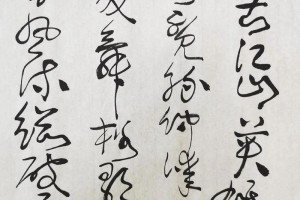 古江山英雄
覓孫仲謀
處舞榭歌
風流總被